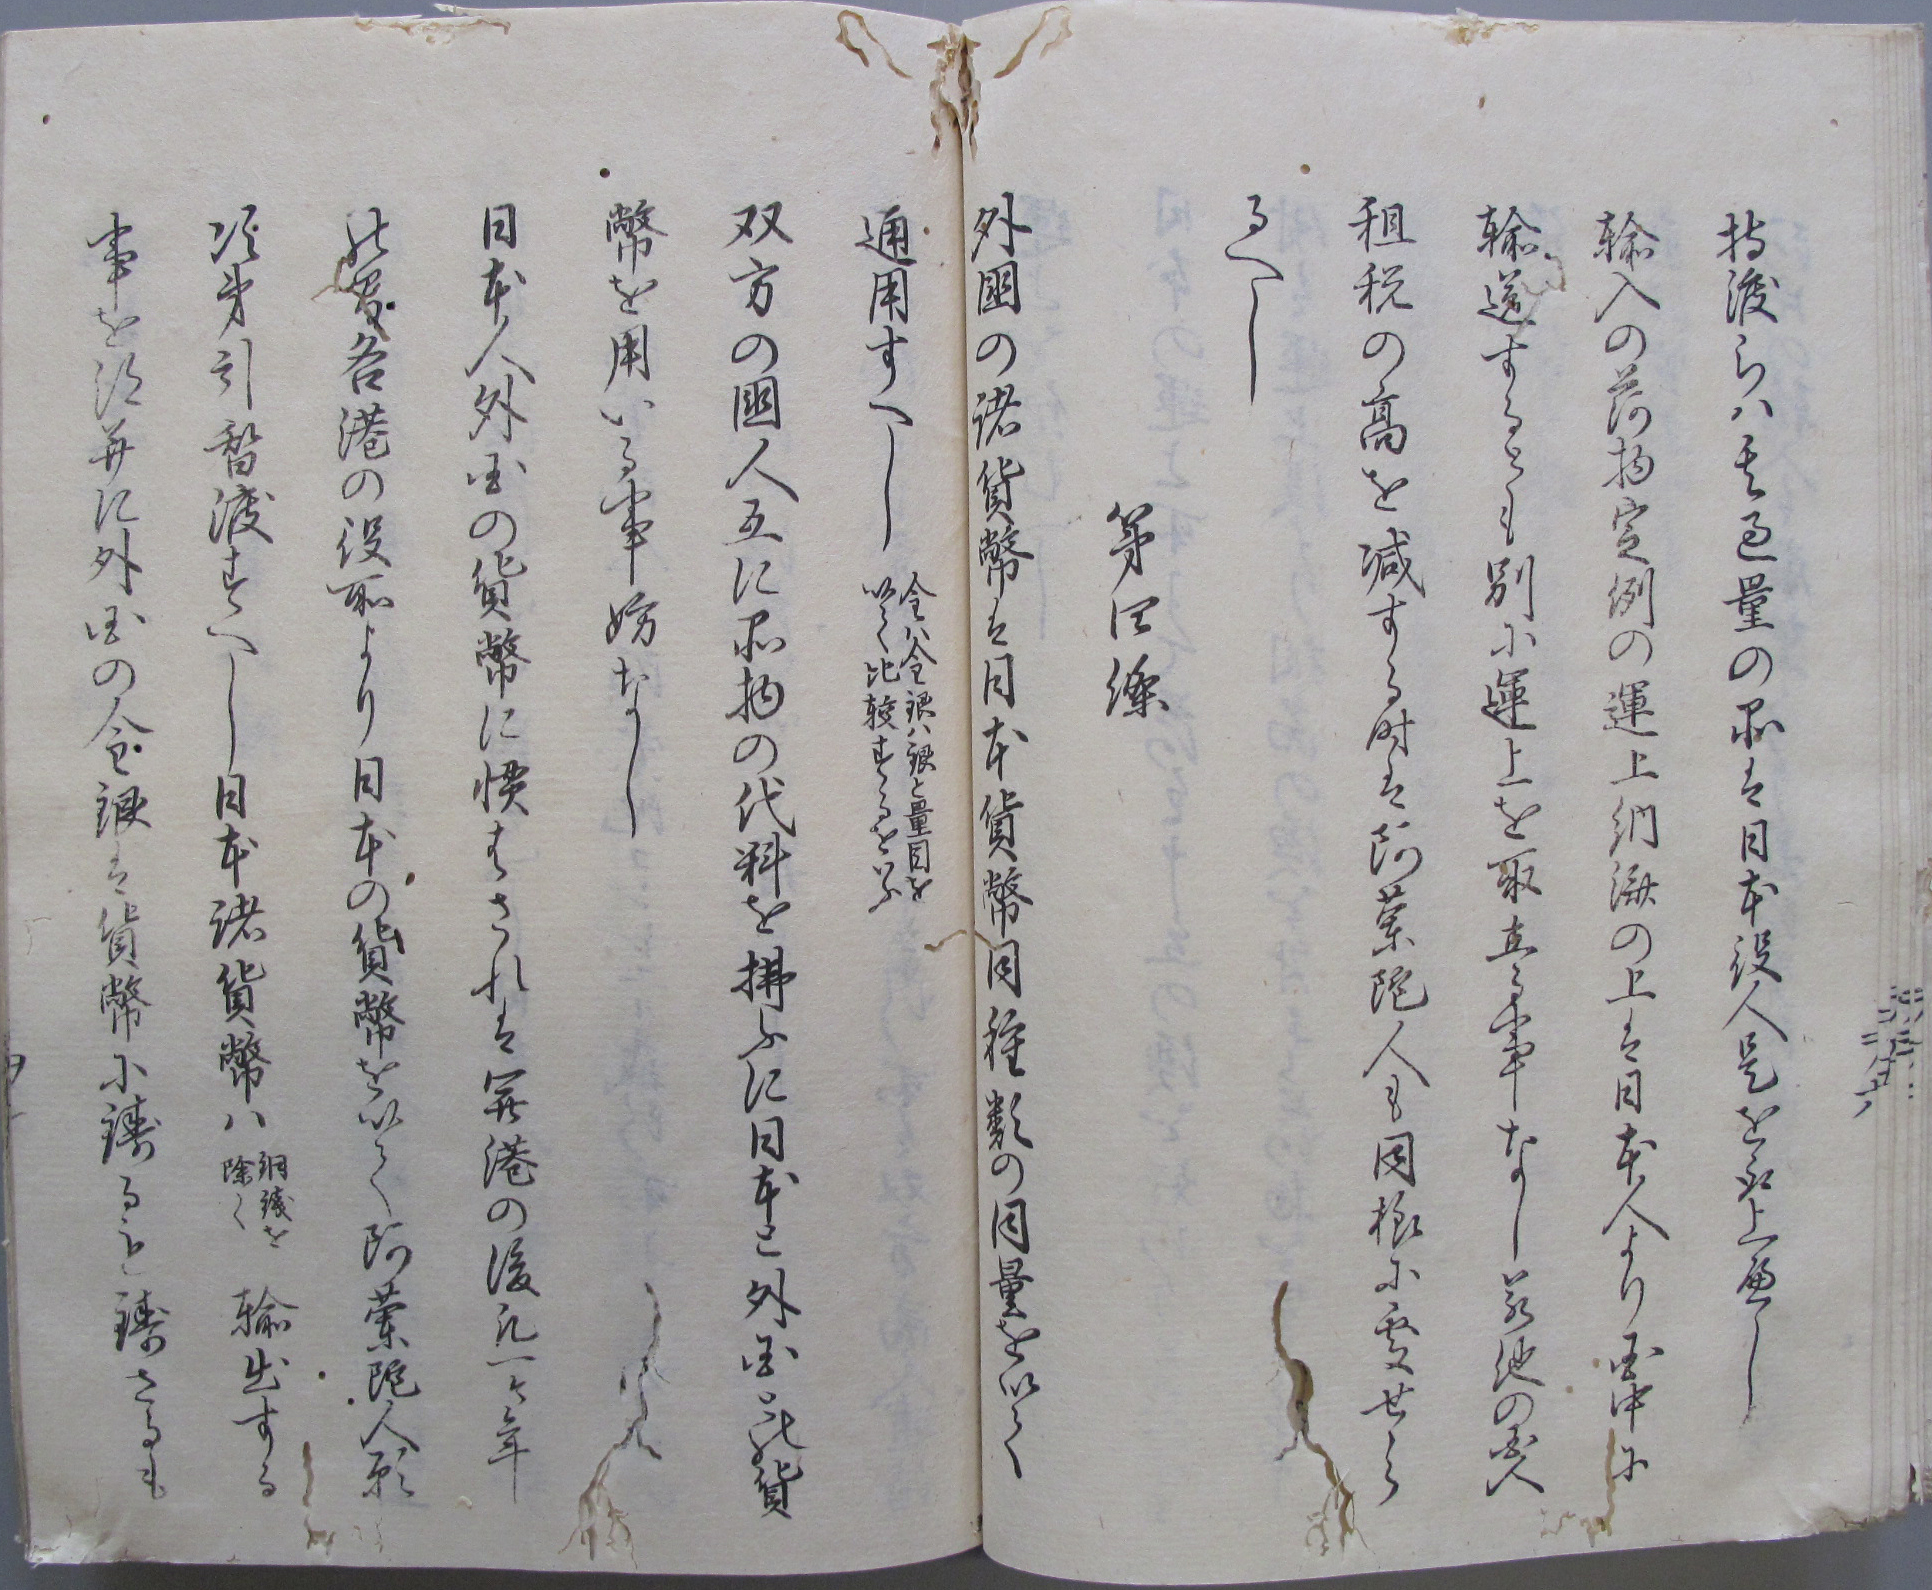 持渡らハ其過量の品は日本役人是を取上へし
輸入の荷物定例の運上納済の上は日本人より国中に
輸送するとも別に運上を取立る事なし若他の国人
租税の高を減する時は阿蘭陀人も同様に受せら
るへし
第四条
外国の諸貨幣は日本貨幣同種類の同量を以て
通用すへし
金ハ金銀ハ銀と量目を
以て比較するをいふ
双方の国人互に品物の代料を拂ふに日本と外国との貨
幣を用いる事妨なし
日本人外国の貨幣に慣はされは開港の後凡一ケ年
の間各港の役所より日本の貨幣を以て阿蘭陀人願
次第引替渡すへし日本諸貨幣ハ
銅銭を
除く
輸出する
事を得并に外国の金銀は貨幣に鋳るも鋳さるも